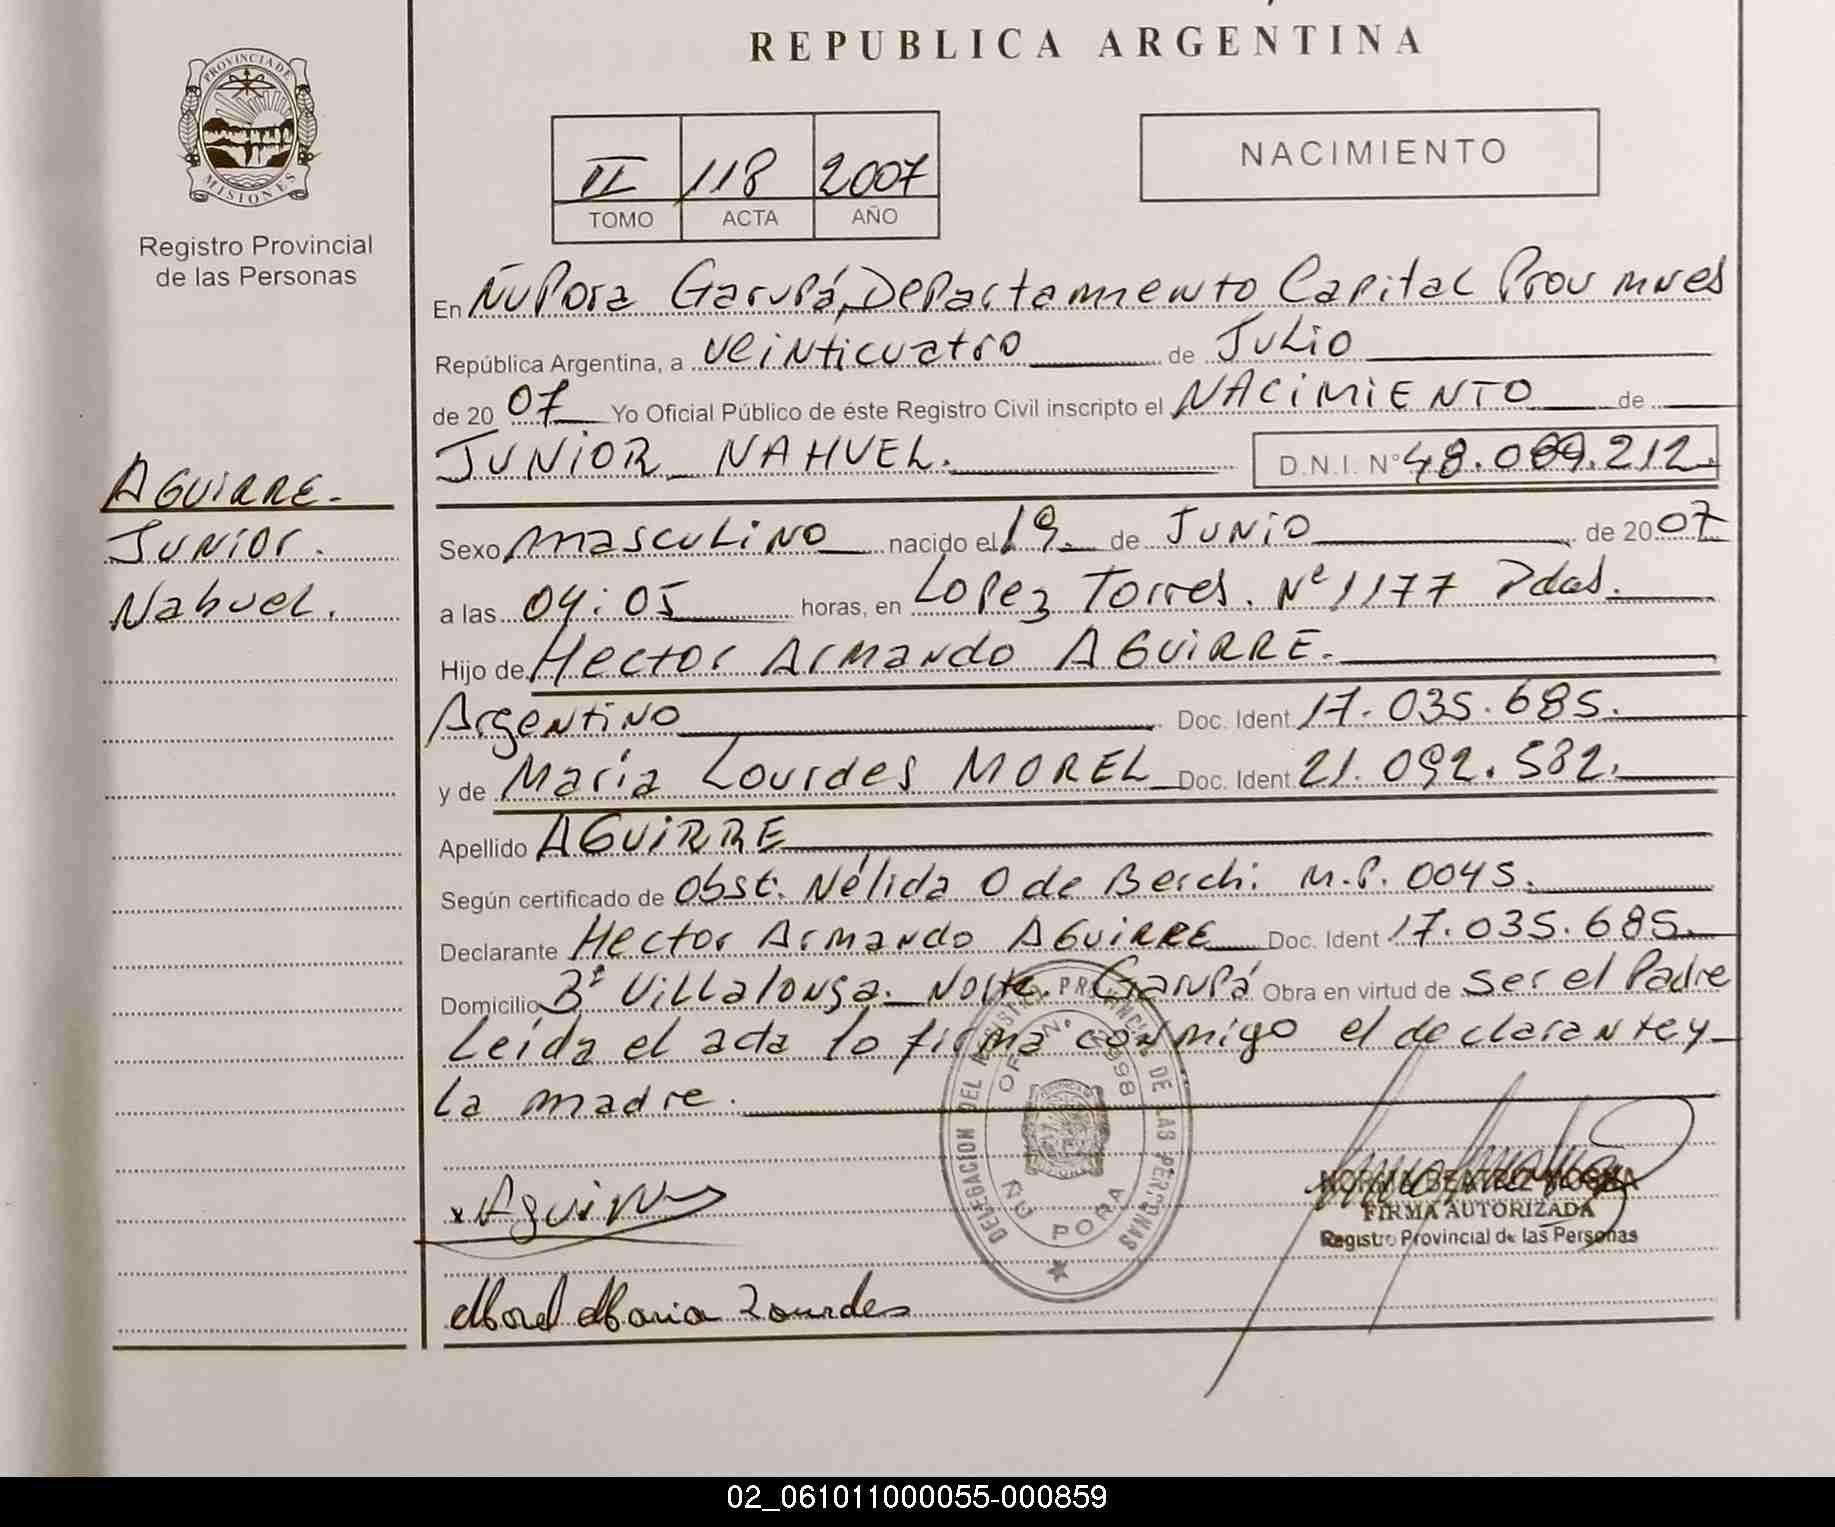 REPUBLICA ARGENTINA
PROVINCIA DE
MISIONES
Registro Provincial
de las Personas
II 118 2007
TOMO ACTA AÑO
NACIMIENTO
En Ñu Pora Garupá, Departamento Capital Prov mnes
República Argentina, a veinticuatro de Julio
de 20 07 Yo Oficial Público de éste Registro Civil inscripto el NACIMIENTO de
JUNIOR NAHUEL. D.N.I. Nº 48.089.212.
AGUIRRE.
Junior.
Nahuel.
Sexo masculino nacido el 19. de Junio de 20 07
a las 04:05 horas, en Lopez Torres. Nº 1177 Pdas.
Hijo de Hector Armando AGUIRRE.
Argentino Doc. Ident 17.035.685.
y de María Lourdes MOREL Doc. Ident 21.092.582.
Apellido AGUIRRE
Según certificado de Obst. Nélida O de Berchi M.P. 0045.
Declarante Hector Armando AGUIRRE Doc. Ident 17.035.685.
Domicilio Bº Villalonga. Norte. Garupá Obra en virtud de ser el Padre
Leída el acta lo firma conmigo el declarante y
la madre.
DELEGACION DEL REGISTRO PROVINCIAL DE LAS PERSONAS
OF. N. 2998
ÑU PORA
x Aguirre
NORMA BEATRIZ
FIRMA AUTORIZADA
Registro Provincial de las Personas
Morel Maria Lourdes
02_061011000055-000859